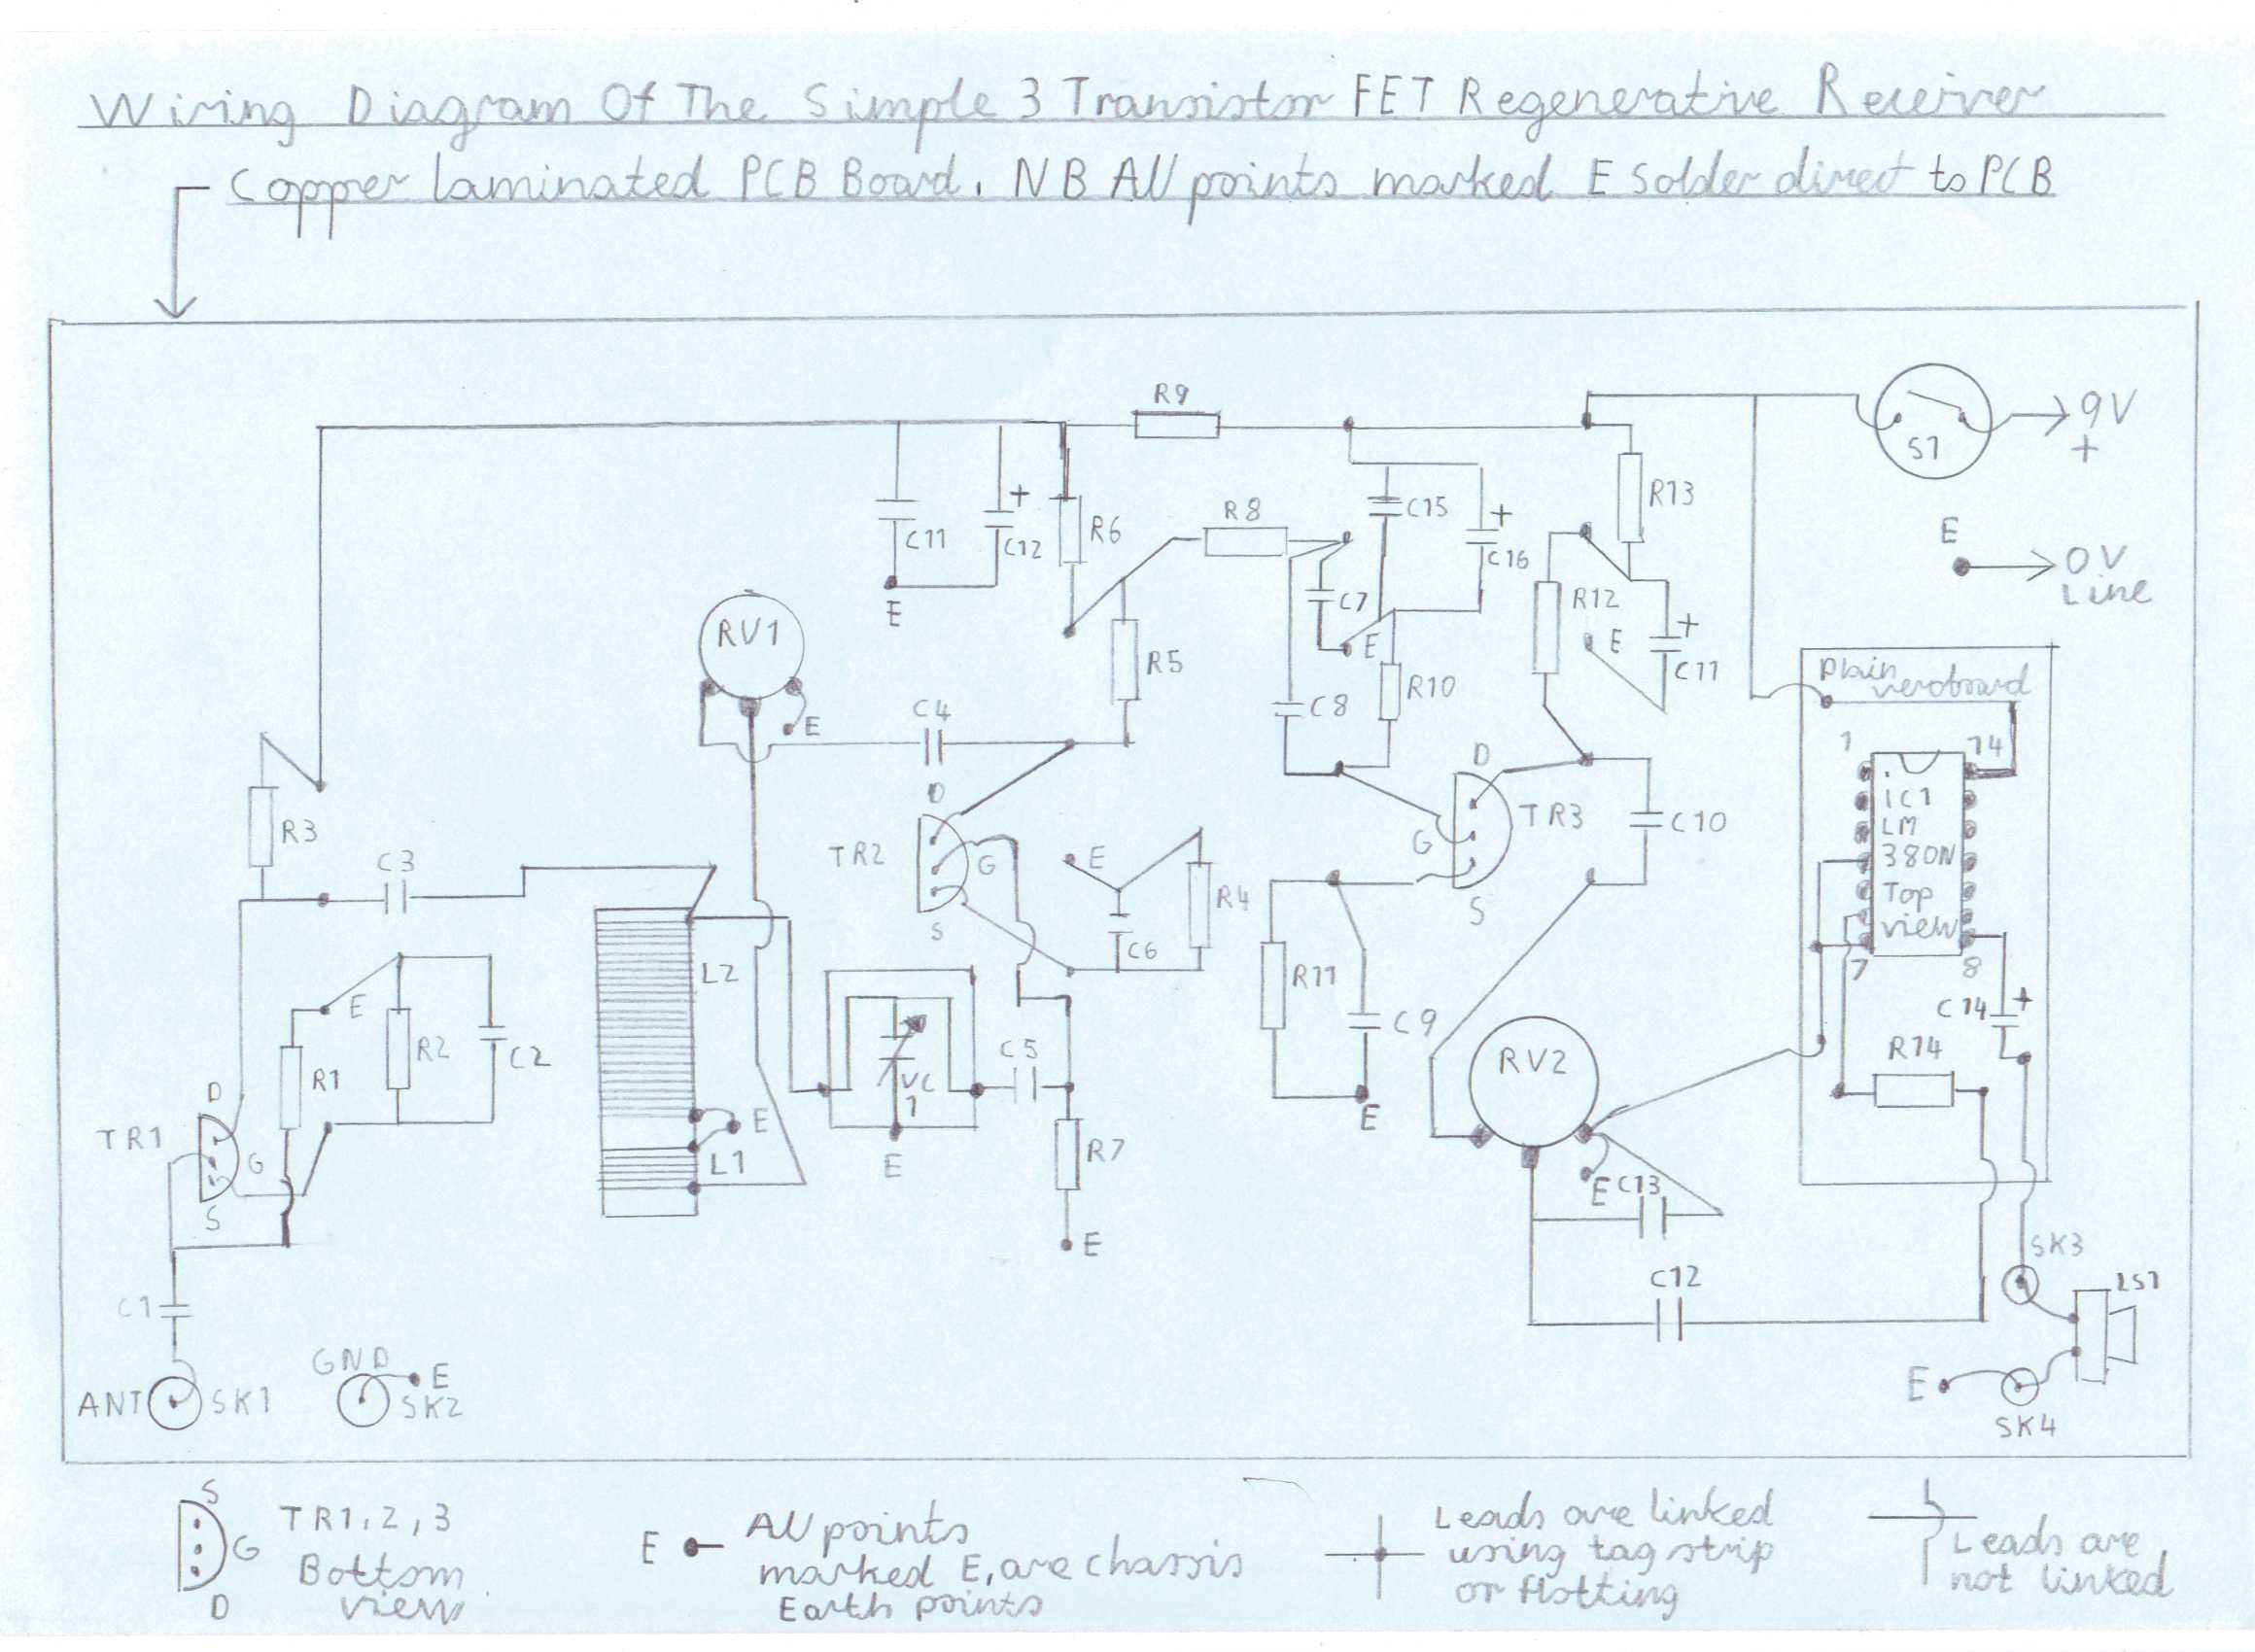 Wiring Diagram Of The Simple 3 Transistor FET Regenerative Receiver
Copper laminated PCB Board. NB All points marked E Solder direct to PCB
R9
S1
9V
+
R8
C15
R13
C11
+
C12
R6
+
C16
E
0V
Line
E
RV1
C7
E
R12
E
+
C11
R5
R10
Plain
veroboard
E
C4
C8
1
14
D
D
IC1
LM
380N
Top
view
7
8
R3
TR2
G
E
TR3
C10
G
C3
R4
S
C6
S
L2
R11
C9
+
C14
E
R1
R2
C2
VC
1
C5
RV2
R14
D
TR1
G
S
E
L1
E
R7
E
E
C13
E
C12
SK3
LS1
C1
GND
E
ANT
SK1
SK2
E
SK4
S
G
D
TR1,2,3
Bottom
view
E
All points
marked E, are chassis
Earth points
Leads are linked
using tag strip
or flotting
Leads are
not linked